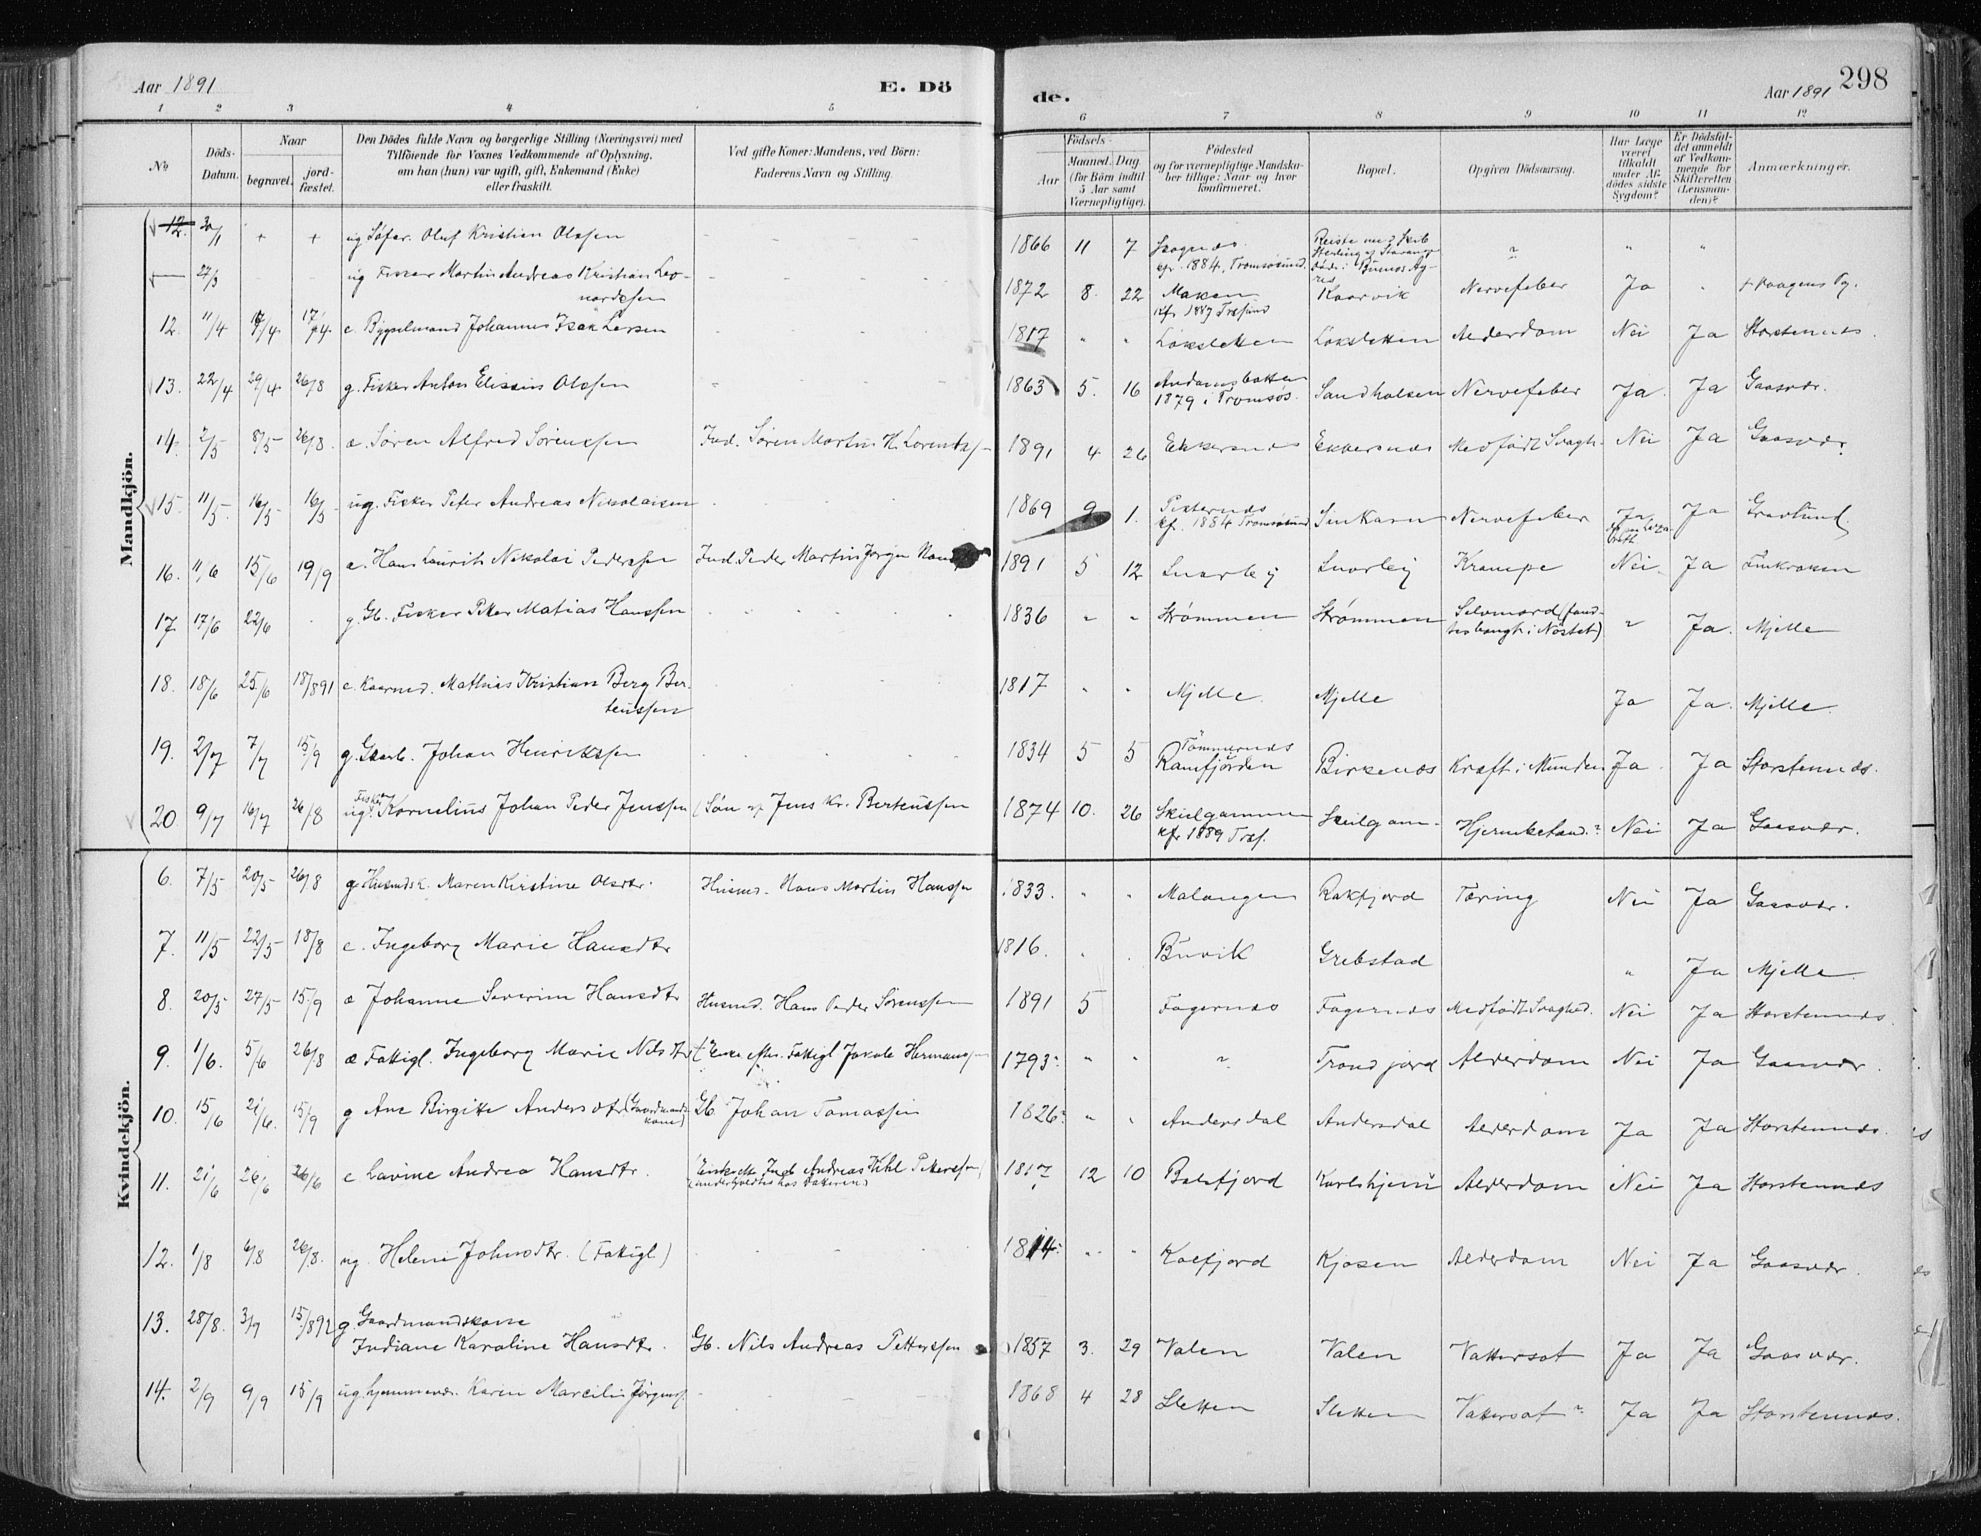 Aar 1891
E. Dö
de.
Aar 1891
298
1 2 3 4 5
6 7 8 9 10 11 12
No.
Döds-Datum.
Naar
begravet.
jordfæstet.
Den Dödes fulde Navn og borgerlige Stilling (Næringsvei) med Tilföiende for Voxnes Vedkommende af Oplysning, om han (hun) var ugift, gift, Enkemand (Enke) eller fraskilt.
Ved gifte Koner: Mandens, ved Börn: Faderens Navn og Stilling.
Födsels-
Aar
Maaned. Dag
(for Börn indtil 5 Aar samt Værnepligtige).
Födested
og for værnepligtige Mandskaber tillige: Naar og hvor konfirmeret.
Bopæl.
Opgiven Dödsaarsag.
Har Læge været tilkaldt under Afdödes sidste Sygdom?
Er Dödsfaldet anmeldt af Vedkommende for Skifteretten (Lensmanden)?
Anmærkninger.
Mandkjön.
12. 20/1 + + ug Olaf Kristian Olssen 1866 11 7 1884, Tromsøsund.
27/3 ug Fisker Martin Andreas Kristian Leonardssen 1872 8. 22 Kaarvik Nervefeber Ja
12. 11/4 17/4 17/4 e. Johannes Isak Larsen 1817 " " Lökslettens Lökslettens Alderdom Nei Ja Storstennes.
13. 22/4 29/4 26/8 g. Fisker Anton Elisæus Olssen 1863 5. 16 1879 i Tromsö. Sandhalsen Nervefeber Ja Ja Gaasvær.
14. 2/5 8/5 26/8. æ. Søren Alfred Sørenssen Ind. Søren Martin H. Lorentss 1891 4 26 Ekkersnes Ekkersnes Medfödt Svagh. Nei Ja Gaasvær
15. 11/5. 16/5 16/5 ug. Fisker Peter Andreas Nikolaisen 1869 9 1. kf. 1884 Tromsøsund Nervefeber Ja Ja Gravlund.
16. 11/6 15/6 19/9 æ. Hans Laurits Nikolai Pederssen Ind. Peder Martin Jørgen 1891 5 12 Snarby Snarby Krampe Nei. Ja Finkroken
17. 17/6 22/6 g. Gb. Fisker Peter Matias Hanssen 1836 " " Strømmen Strømmen Selvmord (fandtes hængt i Nöstet) " Ja. Mjelle
18. 18/6 25/6 18/891 e. Kaarmd. Mathias Kristian Berg Berteussen 1817 " " Mjelle. Mjelle Ja Ja. Mjelle.
19. 2/7 7/7 15/9 g. Gaarb. Johan Henrikssen 1834 5 5 Tömmernes Ramfjorden Birkenes Kræft i Munden Ja Ja Storstennes.
20. 9/7 16/7 26/8 ug. Fisker Kornelius Johan Peder Jenssen (Sön af Jens Kr. Berteussen 1874 10. 26 Skulgammen kfr 1889 Trøs. Skulgam. Nei Ja Gaasvær.
Kvindekjön.
6. 7/5 20/5 26/8 g. Husmdsk. Maren Kirstine Olsdtr. Husmd. Hans Martin Hanssen 1833. " " Malangen Rakfjord Tæring Nei Ja Gaasvær.
7. 11/5 22/5 18/8 e. Ingeborg Marie Hansdtr 1816. " . Buvik Grebstad " Ja Mjelle
8. 20/5 27/5 15/9 æ Johanne Severine Hansdtr Husmd. Hans Peder Sørenssen 1891 5 Fagernes Fagernes Medfödt Svaghed. Nei Ja Storstennes.
9. 1/6. 5/6 26/8 æ Fattigl. Ingeborg Marie Nilsdtr (Enke efter Fattigl Jakob Hermanss 1793. " " " Trondjord Alderdom Nei Ja Gaasvær.
10. 15/6 21/6. 15/9 g Ane Birgitte Andersdtr (Gaardmandskone) Gb. Johan Tomassen 1826. " " Andersdal Andersdal Alderdom Ja Ja Storstennes.
11. 21/6 26/6 26/6 e Lavine Andrea Hansdtr. (Enke efter Andreas Kihl Peterssen) (underholdtes hos Datteren) 1817 12 10 Balsfjord Karlshjem Alderdom Nei Ja Storstennes
12. 1/8 6/8 26/8. ug. Helene Johnsdtr. (Fattigl) 1814. " " Kalfjord Kjosen Alderdom Nei Ja Gaasvær.
13. 28/8. 3/9 15/892 g. Gaardmandskone Indiane Karoline Hansdtr. Gb. Nils Andreas Petterssen 1857 3. 29 Valen Valen Vattersot Ja Ja Gaasvær.
14. 2/9 9/9 15/9 ug. hjemmevær. Karen Marcilie Jørgens. 1868 4 28 Sletten Sletten Vattersot? Ja Ja Storstennes.